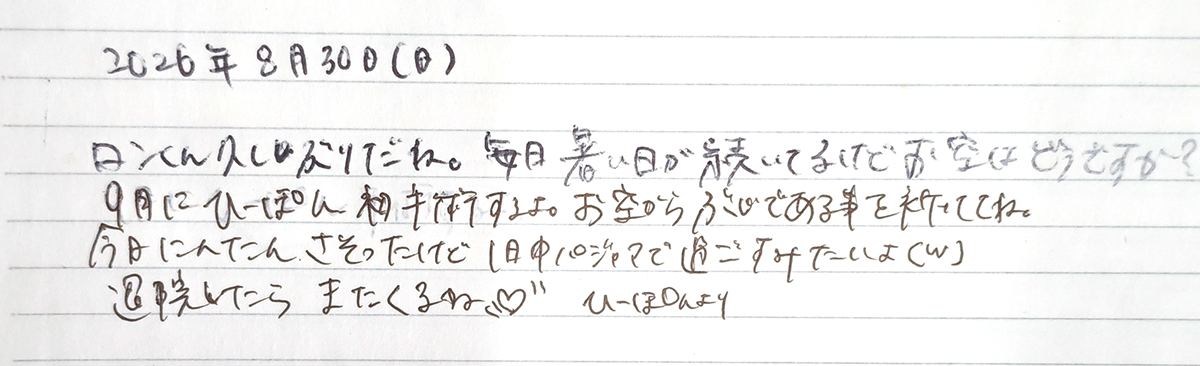 2026年8月30日(日)
ロンくん久しぶりだね。毎日暑い日が続いてるけどお空はどうですか?
9月にひーぽん初手術するよ。お空からぶじである事を祈っててね。
今日にんたんさそったけど1日中パジャマで過ごすみたいよ(w)
退院したらまたくるね♡ ひーぽんより